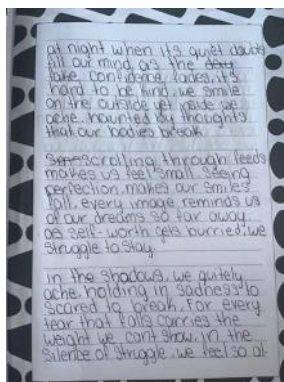 at night when its quiet doubts
fill our mind, as the day
fake confidence fades, it's
hard to be kind, we smile
on the outside yet inside we
ache haunted by thoughts
that our bodies break.
scrolling through feeds
makes us feel small. seeing
perfection makes our smiles
fall. every image reminds us
of our dreams so far away
as self-worth gets burried, we
struggle to stay.
in the shadows, we quitely
ache, holding in sadness to
scared to break. For every
tear that falls carries the
weight we cant show. in the
silence of struggle, we feel so al